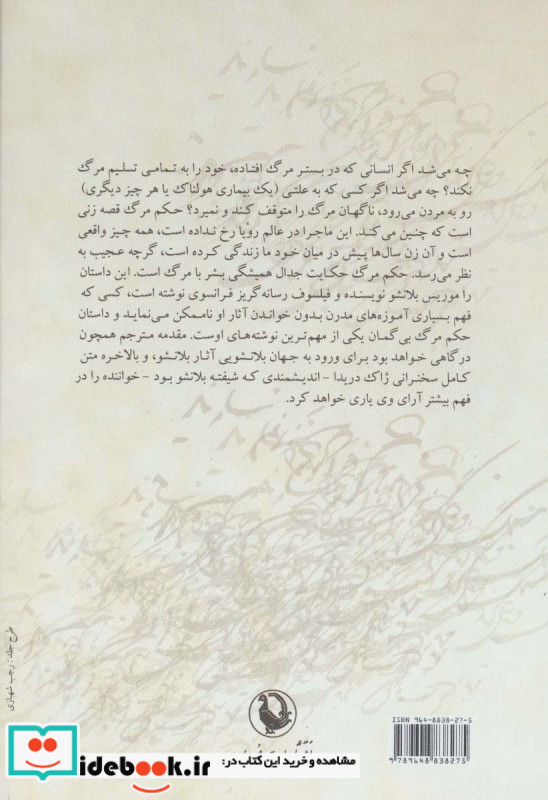 چه می‌شد اگر انسانی که در بستر مرگ افتاده، خود را به تمامی تسلیم مرگ
نکند؟ چه می‌شد اگر کسی که به علتی (یک بیماری هولناک یا هر چیز دیگری)
رو به مردن می‌رود، ناگهان مرگ را متوقف کند و نمیرد؟ حکم مرگ قصه زنی
است که چنین می‌کند. این ماجرا در عالم رویا رخ نداده است، همه چیز واقعی
است و آن زن سال‌ها پیش در میان خود ما زندگی کرده است، گرچه عجیب به
نظر می‌رسد. حکم مرگ حکایت جدال همیشگی بشر با مرگ است. این داستان
را موریس بلانشو نویسنده و فیلسوف رسانه‌گریز فرانسوی نوشته است، کسی که
فهم بسیاری آموزه‌های مدرن بدون خواندن آثار او ناممکن می‌نماید و داستان
حکم مرگ بی‌گمان یکی از مهم‌ترین نوشته‌های اوست. مقدمه مترجم همچون
درگاهی خواهد بود برای ورود به جهان بلانشویی آثار بلانشو، و بالاخره متن
کامل سخنرانی ژاک دریدا - اندیشمندی که شیفته بلانشو بود - خواننده را در
فهم بیشتر آرای وی یاری خواهد کرد.
طرح جلد: رجب شهبازی
ISBN 964-8838-27-5
9 789648 838275
مشاهده و خرید این کتاب در:
idebook.ir